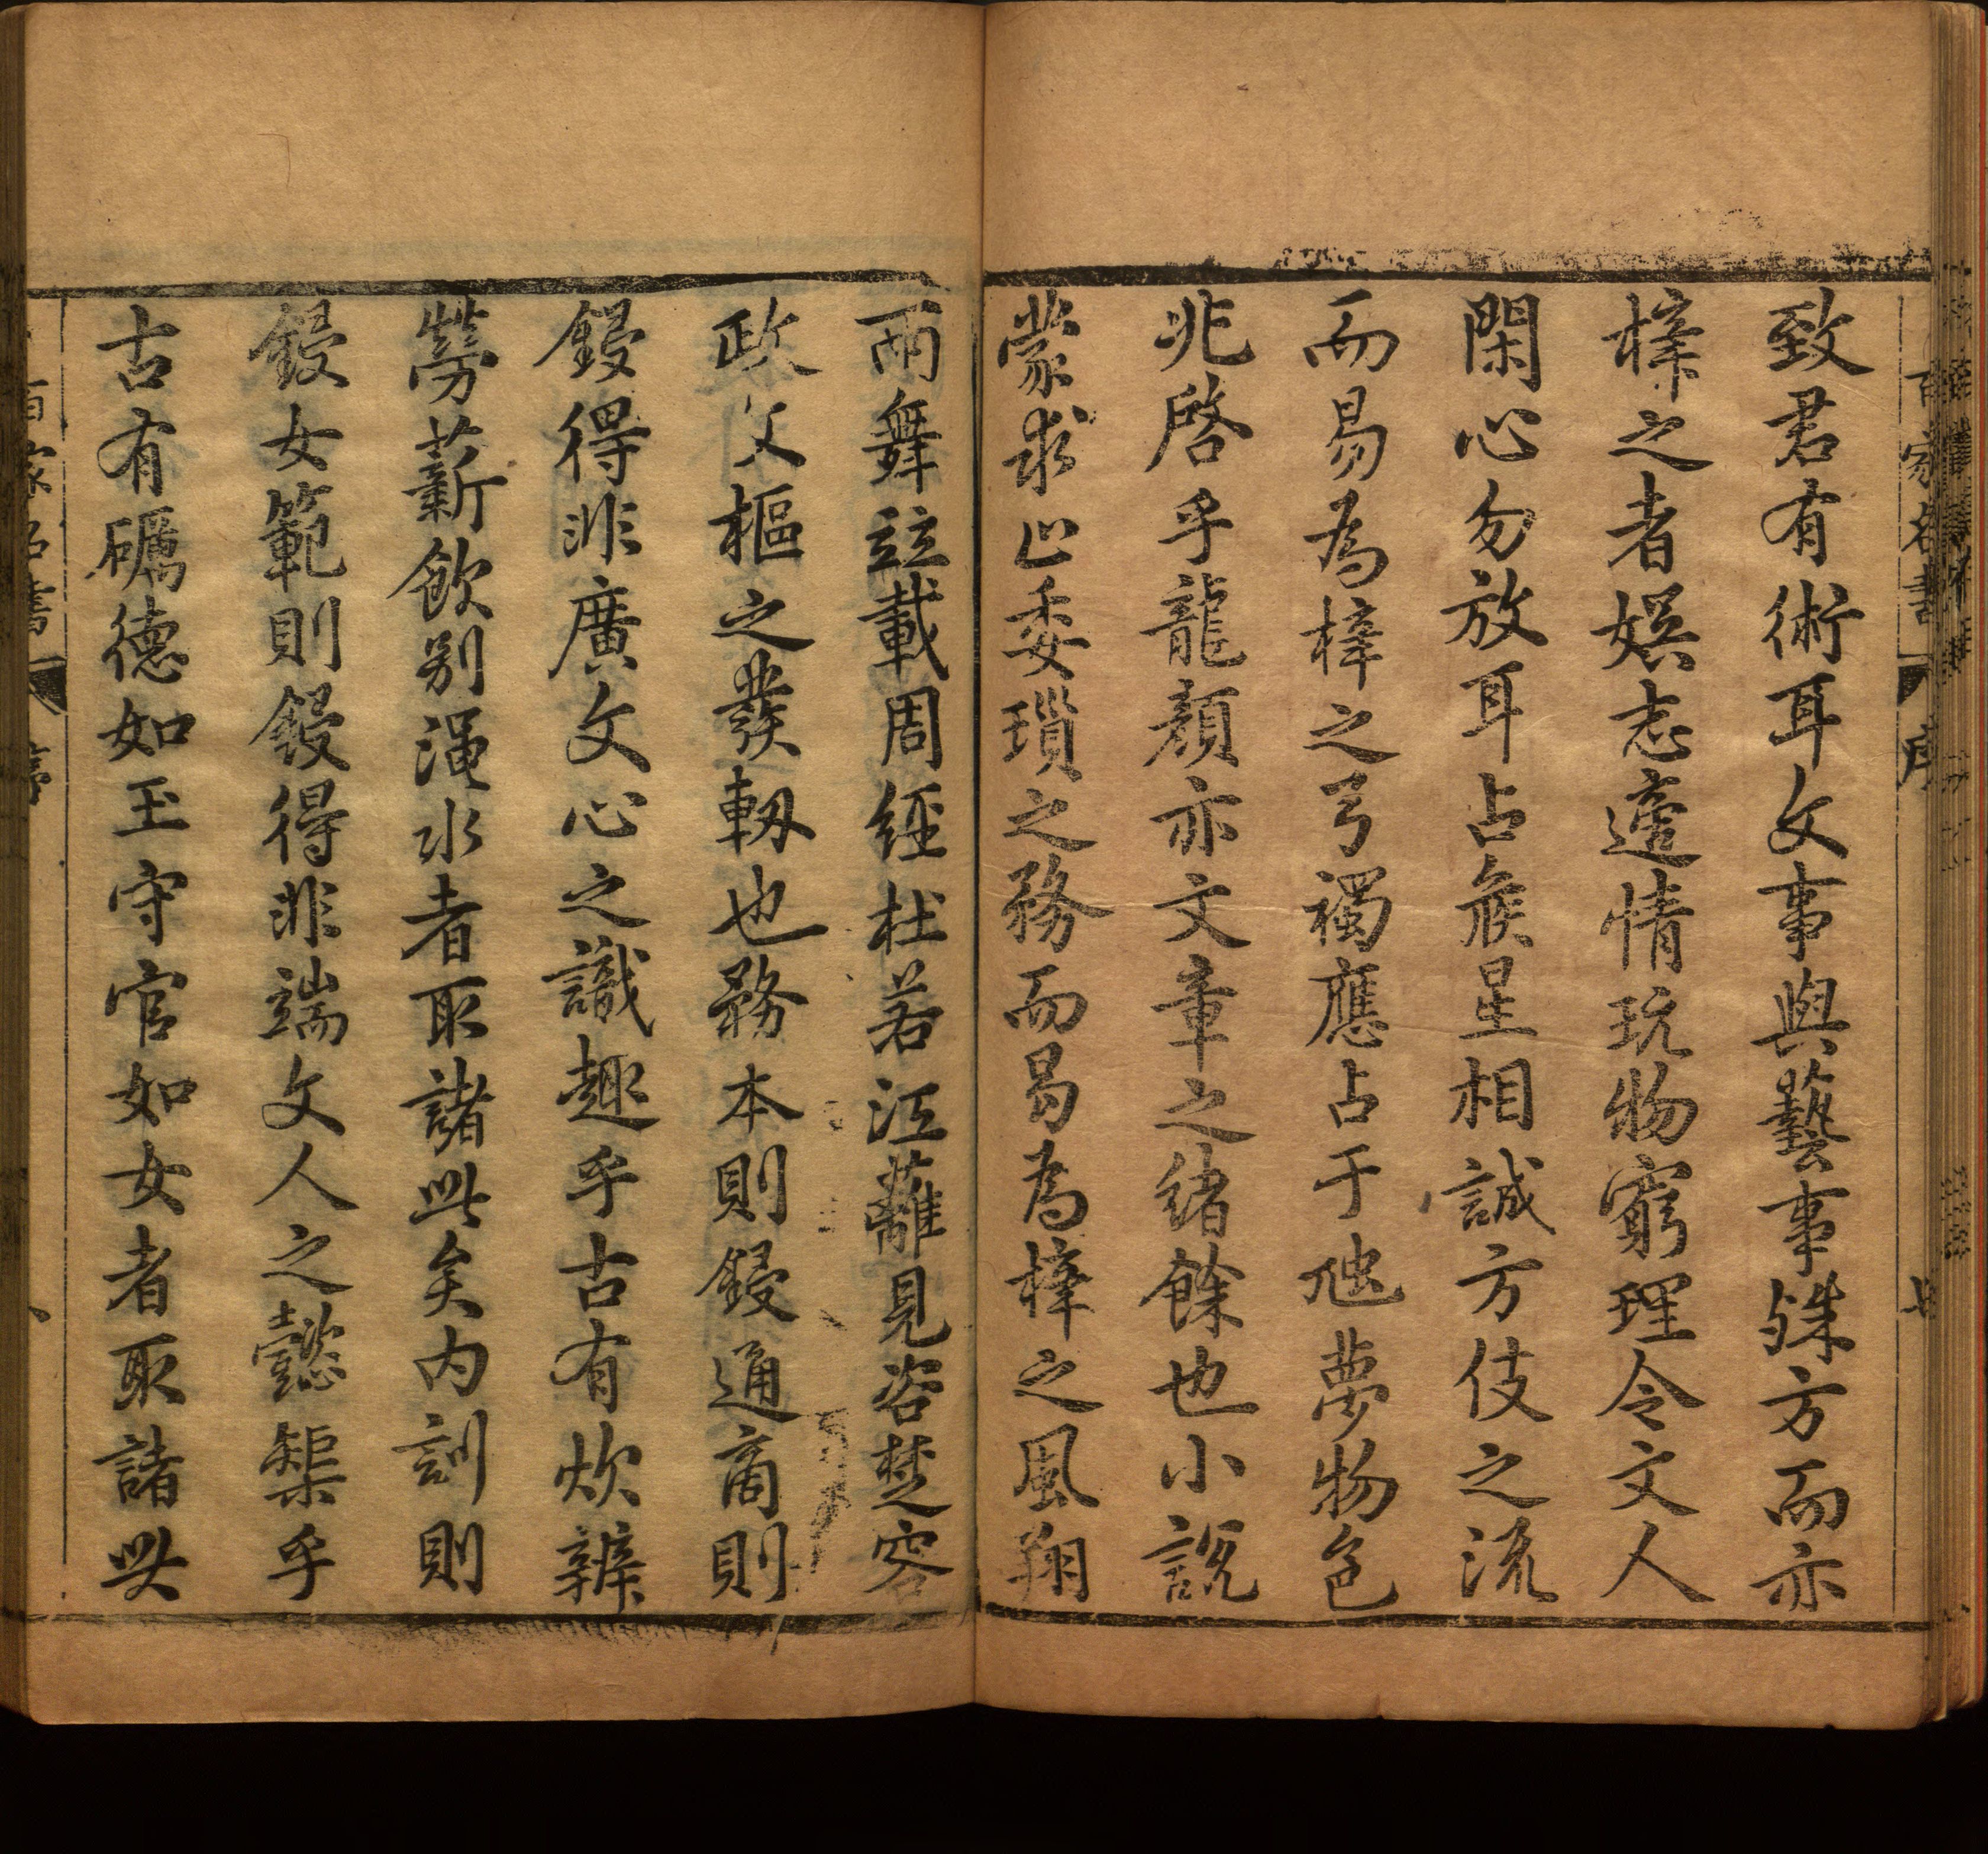 百家名書 序 七
致君有術耳文事與藝事殊方而亦
梓之者娛志適情玩物窮理令文人
閑心勿放耳占候星相誠方伎之流
而易為梓之弓襡應占于虺夢物色
兆啓乎龍顏亦文章之緒餘也小說
蒙求止委瑣之務而曷為梓之風翔
雨舞竝載周經杜若江蘺見咨楚容
政文樞之發軔也務本則鋟通商則
鋟得非廣文心之識趣乎古有炊辨
勞薪飲别澠水者取諸此矣内訓則
鋟女範則鋟得非端文人之懿榘乎
古有礪德如玉守官如女者取諸此
百家名書 序